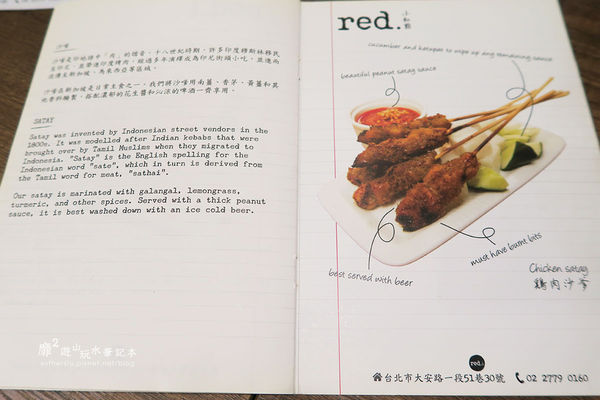 沙嗲
沙嗲是印地語中「肉」的諧音，十八世紀時期，許多印度穆斯林移民
至印尼，並帶進印度烤肉，經過多年演釋成為印尼街頭小吃，並進而
流傳至新加坡、馬來西亞等區域。
沙嗲在新加坡是日常主食之一，我們將沙嗲用南薑、香茅、黃薑和其
他香料醃製，搭配濃郁的花生醬和沁涼的啤酒一齊享用。
SATAY
Satay was invented by Indonesian street vendors in the
1800s. It was modelled after Indian kebabs that were
brought over by Tamil Muslims when they migrated to
Indonesia. "Satay" is the English spelling for the
Indonesian word "sate", which in turn is derived from
the Tamil word for meat, "sathai".
Our satay is marinated with galangal, lemongrass,
turmeric, and other spices. Served with a thick peanut
sauce, it is best washed down with an ice cold beer.
靡2遊山玩水筆記本
red.
cucumber and ketupat to wipe up any remaining sauce
beautiful peanut satay sauce
must have burnt bits
best served with beer
Chicken satay
雞肉沙爹
red.
台北市大安路一段51巷30號 02 2779 0160